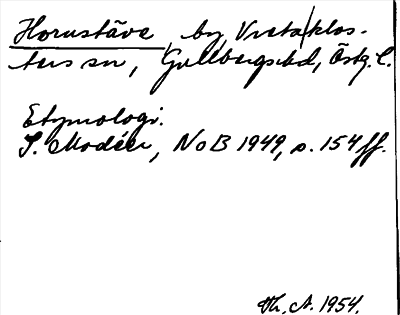 Hornstäve, by, Vreta klos-
ters sn, Gullbergs hd, Östg. l.
Etymologi.
I. Modéer, NoB 1949, s. 154 ff.
Th. A. 1954.